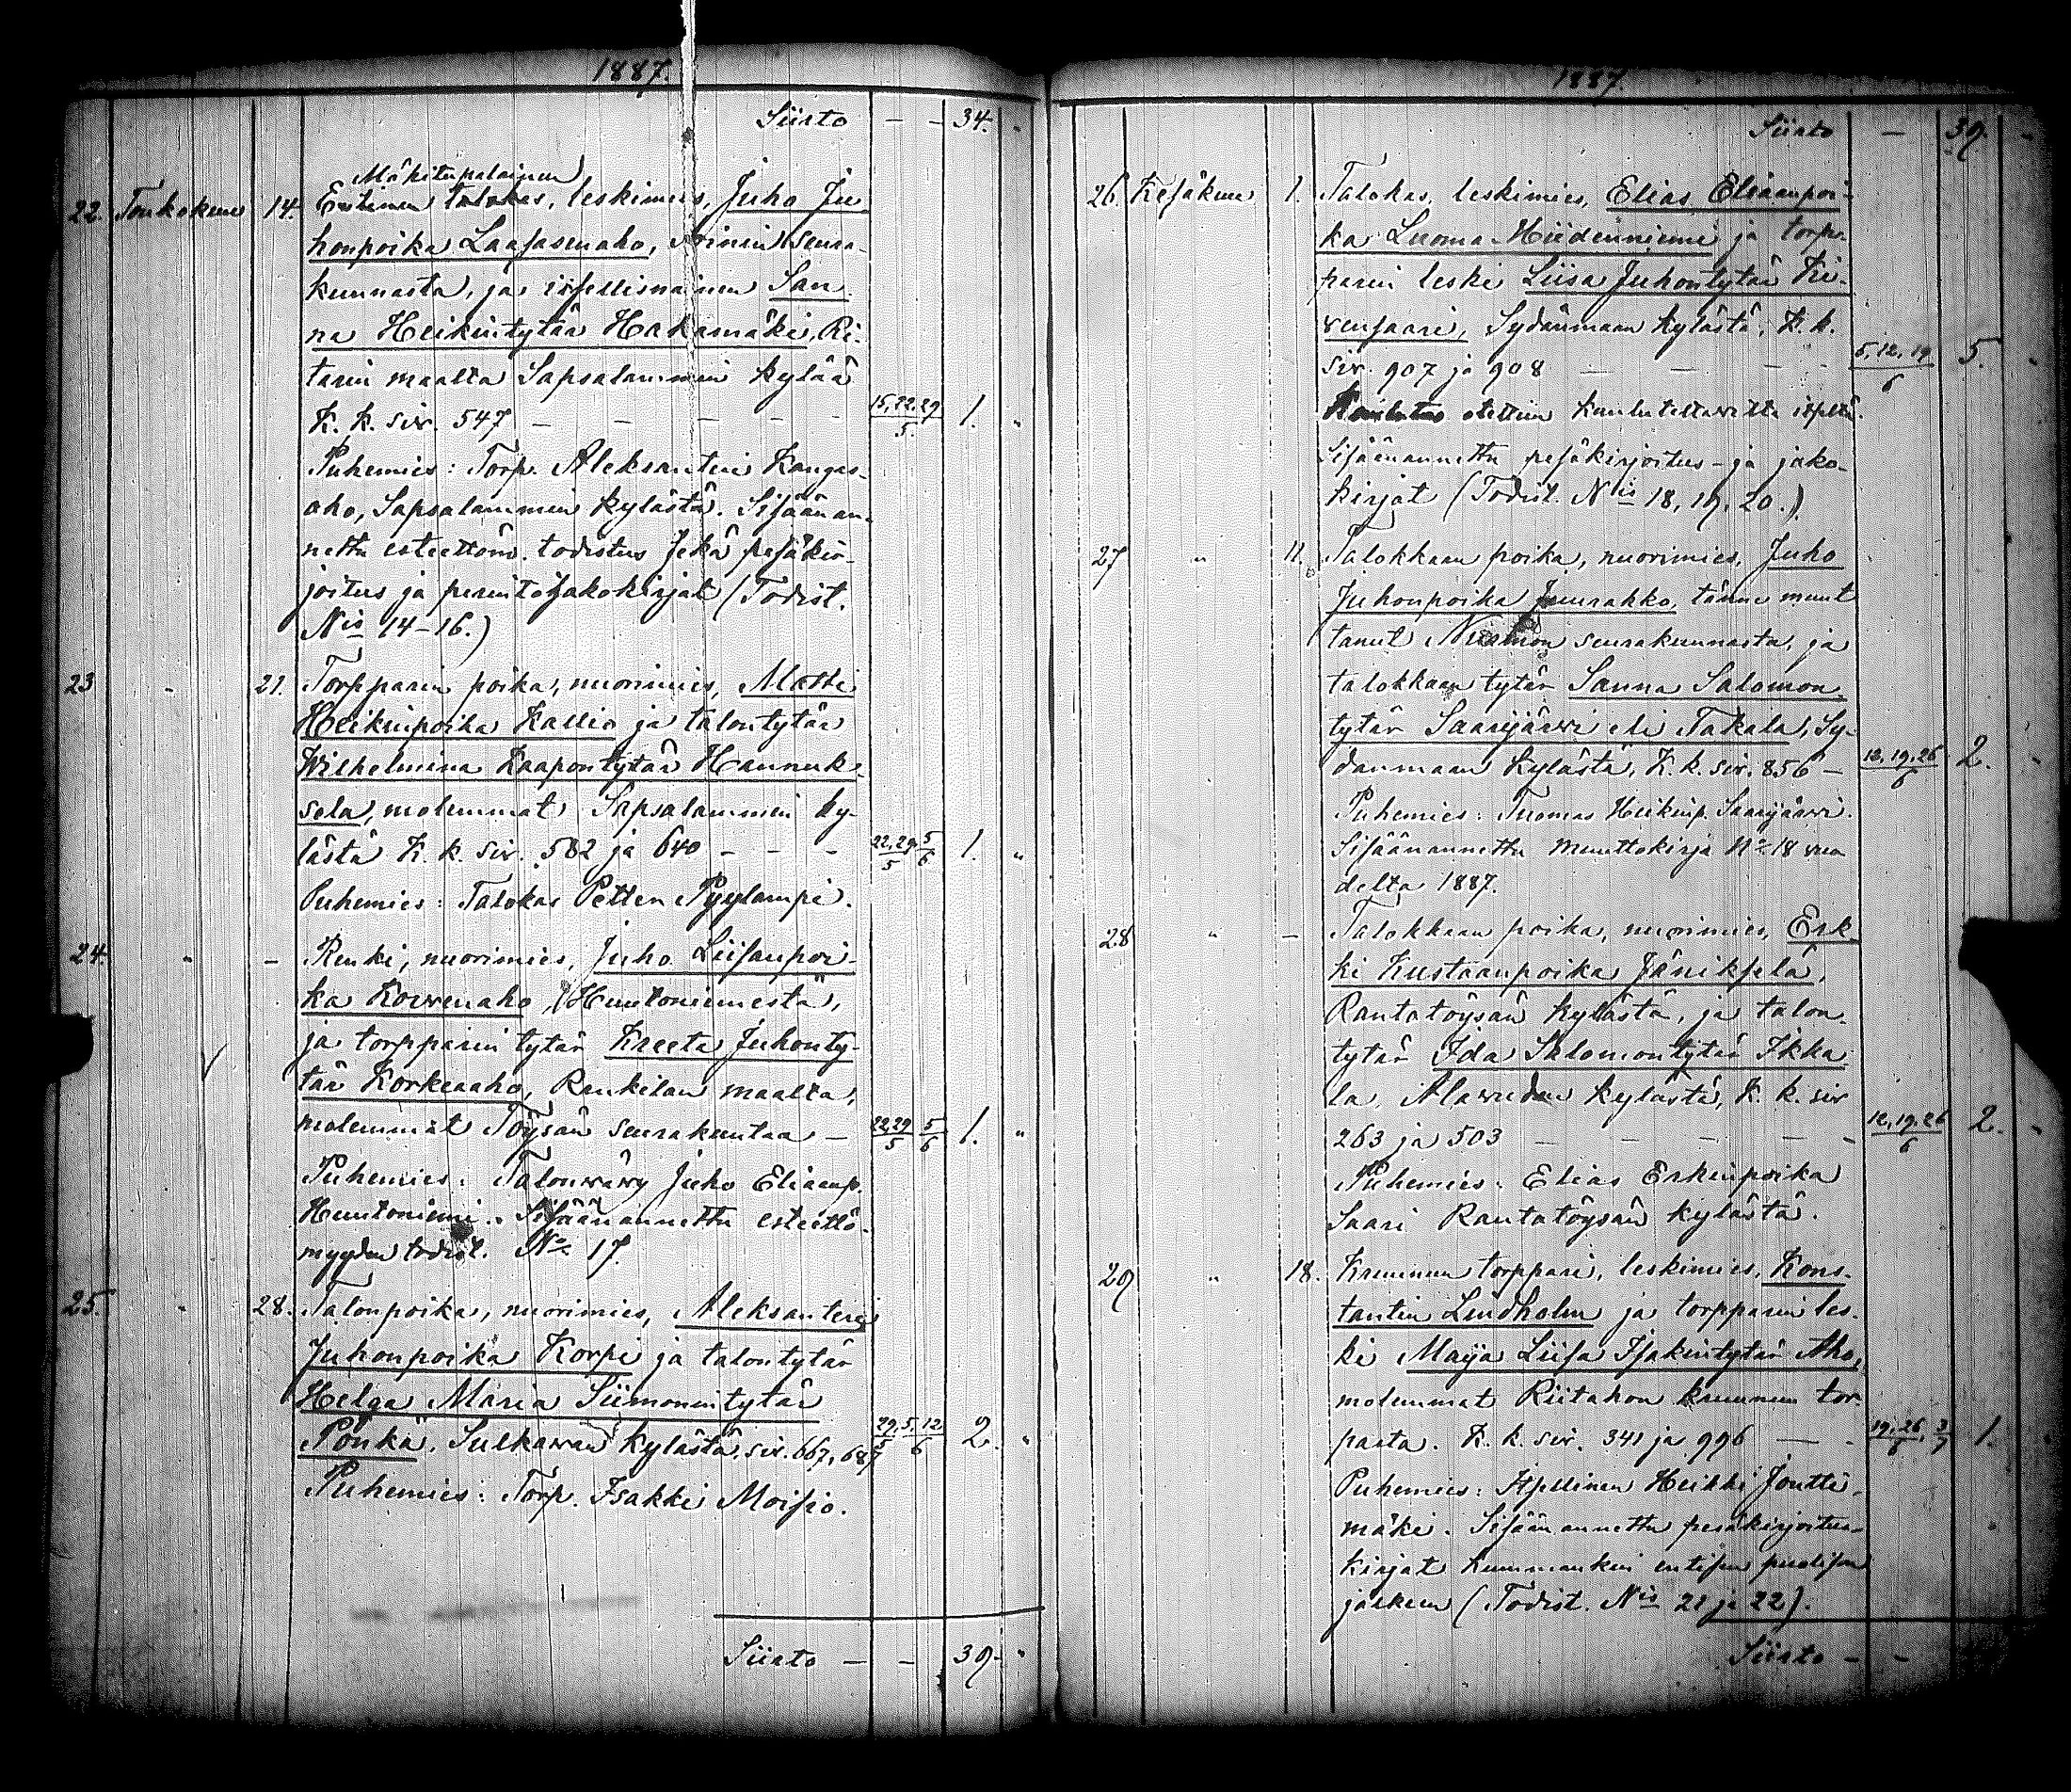 1887.
Siirto — — 34. „
Mäkitupalainen
22. Toukokuu 14. Entinen talokas, leskimies, Juho Ju-
honpoika Laasasenaho, seura-
kunnasta, ja itsellisnainen San-
na Heikintytär Hakamäki, Ri-
tarin maalta Sapsalammin kylää
K. k. siv. 547 — — — — 15,22,29/5. 1. „
Puhemies: Torp. Aleksanteri Kangas-
aho, Sapsalammin kylästä. Sisäänan-
nettu esteettöm. todistus sekä pesäkir-
joitus ja perintöjakokirjat (Todist.
Nis 14-16.)
23 „ 21. Torpparin poika, nuorimies, Matti
Heikinpoika Kallio ja talontytär
Wilhelmina Kaapontytär Hannuk-
sela, molemmat Sapsalammin ky-
lästä K. k. siv. 582 ja 640 — — — 22,29/5 5/6 1. „
Puhemies: Talokas Petter Pyylampi.
24. „ — Renki, nuorimies, Juho Liisanpoi-
ka Korvenaho (Huutoniemestä),
ja torpparin tytär Kreeta Juhonty-
tär Korkeaaho, Rankilan maalta,
molemmat Töysän seurakuntaa — 22,29/5 5/6 1. „
Puhemies: Talonvävy Juho Eliaanp.
Huutoniemi. Sisäänannettu esteettö-
myyden todist. No 17.
25. „ 28. Talonpoika, nuorimies, Aleksanteri
Juhonpoika Korpi ja talontytär
Helga Maria Siimonintytär
Pönkä, Sulkawan kylästä, siv. 667, 687 29/5, 5,12/6 2. „
Puhemies: Torp. Isakki Moisio.
Siirto — — 39. „
1887.
Siirto — 39. „
26. Kesäkuu 1. Talokas, leskimies, Elias Eliaanpoi-
ka Luoma-Hiidenniemi ja torp-
parin leski Liisa Juhontytär Ki-
vensaari, Sydänmaan kylästä, K. k.
siv. 907 ja 908 — — — — 5,12,19/6 5. „
Kuulutus otettiin kuulutettavilta itseltä.
Sisäänannettu pesäkirjoitus- ja jako-
kirjat (Todist. Nis 18, 19, 20.)
27 „ 11. Talokkaan poika, nuorimies, Juho
Juhonpoika Juurakko, tänne muut-
tanut seurakunnasta, ja
talokkaan tytär Sanna Salomon-
tytär Saarijärwi eli Takala, Sy-
dänmaan kylästä, K. k. siv. 856 — 12,19,26/6 2. „
Puhemies: Tuomas Heikinp. Saarijärwi.
Sisäänannettu muuttokirja No 18 vuo-
delta 1887.
28 „ — Talokkaan poika, nuorimies, Erk-
ki Kustaanpoika Jänikselä,
Rantatöysän kylästä, ja talon-
tytär Ida Salomontytär Ikka-
la, Alawuden kylästä, K. k. siv
263 ja 503 — — — — 12,19,26/6 2. „
Puhemies: Elias Erkinpoika
Saari Rantatöysän kylästä.
29 „ 18. Kruunun torppari, leskimies, Kons-
tantin Lindholm ja torpparin les-
ki Maija Liisa Isakintytär Aho,
molemmat Riitakon kruunun tor-
pasta. K. k. siv. 341 ja 996 — — 19,26/6, 3/7 1. „
Puhemies: Itsellinen Heikki Jouttä-
mäki. Sisäänannettu pesäkirjoitus-
kirjat kummankin entisen puolison
jälkeen (Todist. Nis 21 ja 22).
Siirto — —